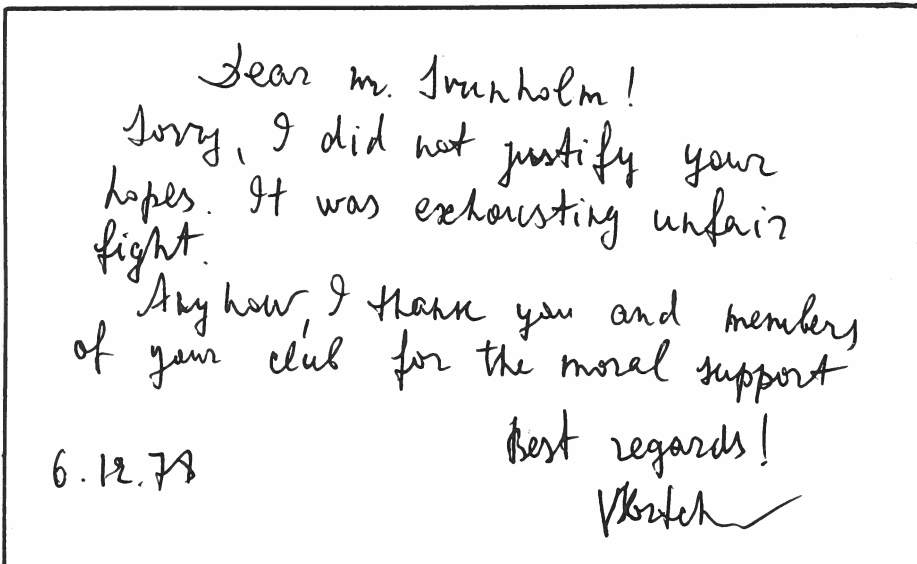 Dear mr. Trunholm!
Sorry, I did not justify your
hopes. It was exhousting unfair
fight.
Anyhow, I thank you and members
of your club for the moral support
Best regards!
6.12.78